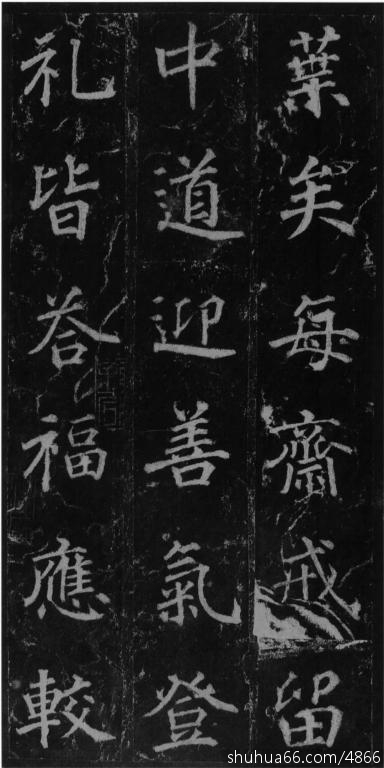 葉矣每齋戒留
中道迎善氣登
礼皆荅福應較
shuhua66.com/4866